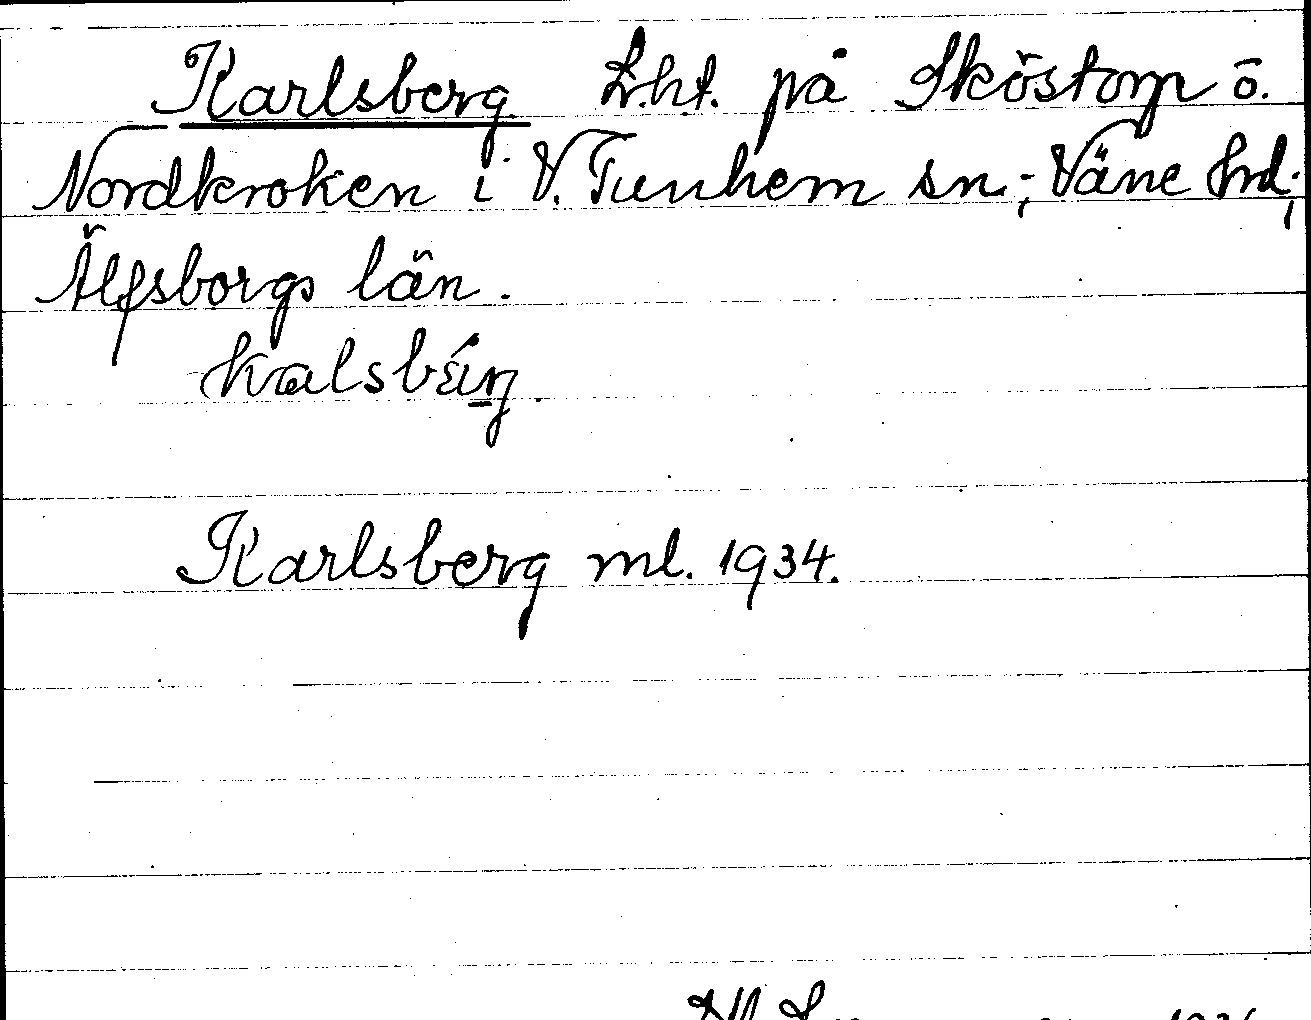 Karlsberg. Lht. på Sköstorp ö.
Nordkroken i V. Tunhem sn.; Väne hrd.;
Älfsborgs län.
kalsbärj.
Karlsberg ml. 1934.